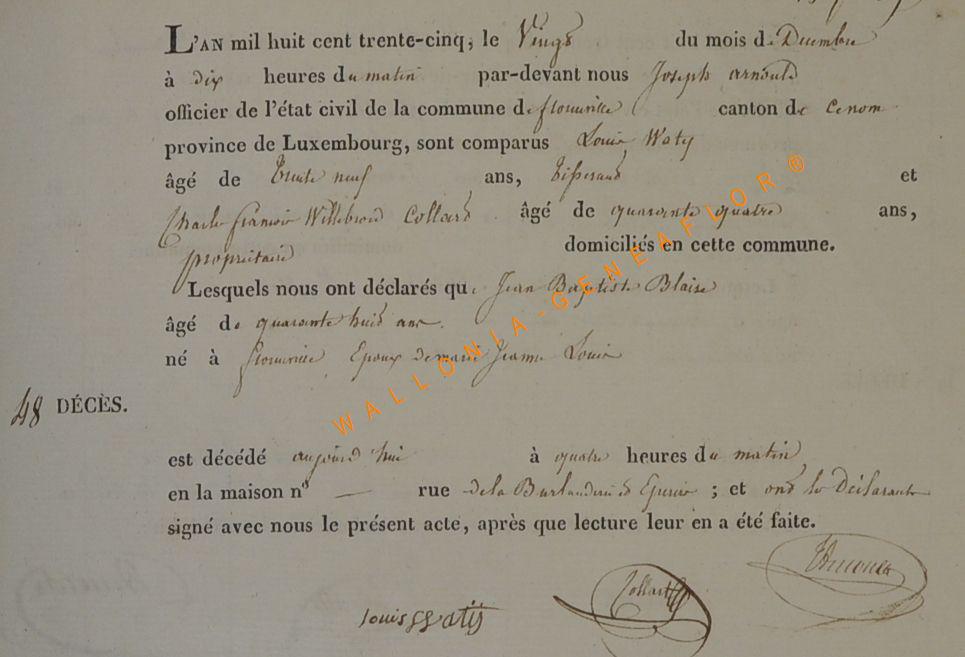 L'AN mil huit cent trente-cinq, le Vingt du mois de Decembre
à dix heures du matin par-devant nous Joseph arnould
officier de l'état civil de la commune de florenville canton de
province de Luxembourg, sont comparus Louis Waty
âgé de trente neuf ans, tisserand et
Charles françois Willebrord Collard âgé de quarante quatre ans,
proprietaire domiciliés en cette commune.
Lesquels nous ont déclarés que Jean Baptiste Blaise
âgé de quarante huit ans.
né à florenville Epoux de marie Jeanne Louis
48 DÉCÈS.
est décédé aujourd'hui à quatre heures du matin
en la maison n° — rue de la ; et ont les Déclarants
signé avec nous le présent acte, après que lecture leur en a été faite.
Collard
WALLONIA-GENEAFLOR®